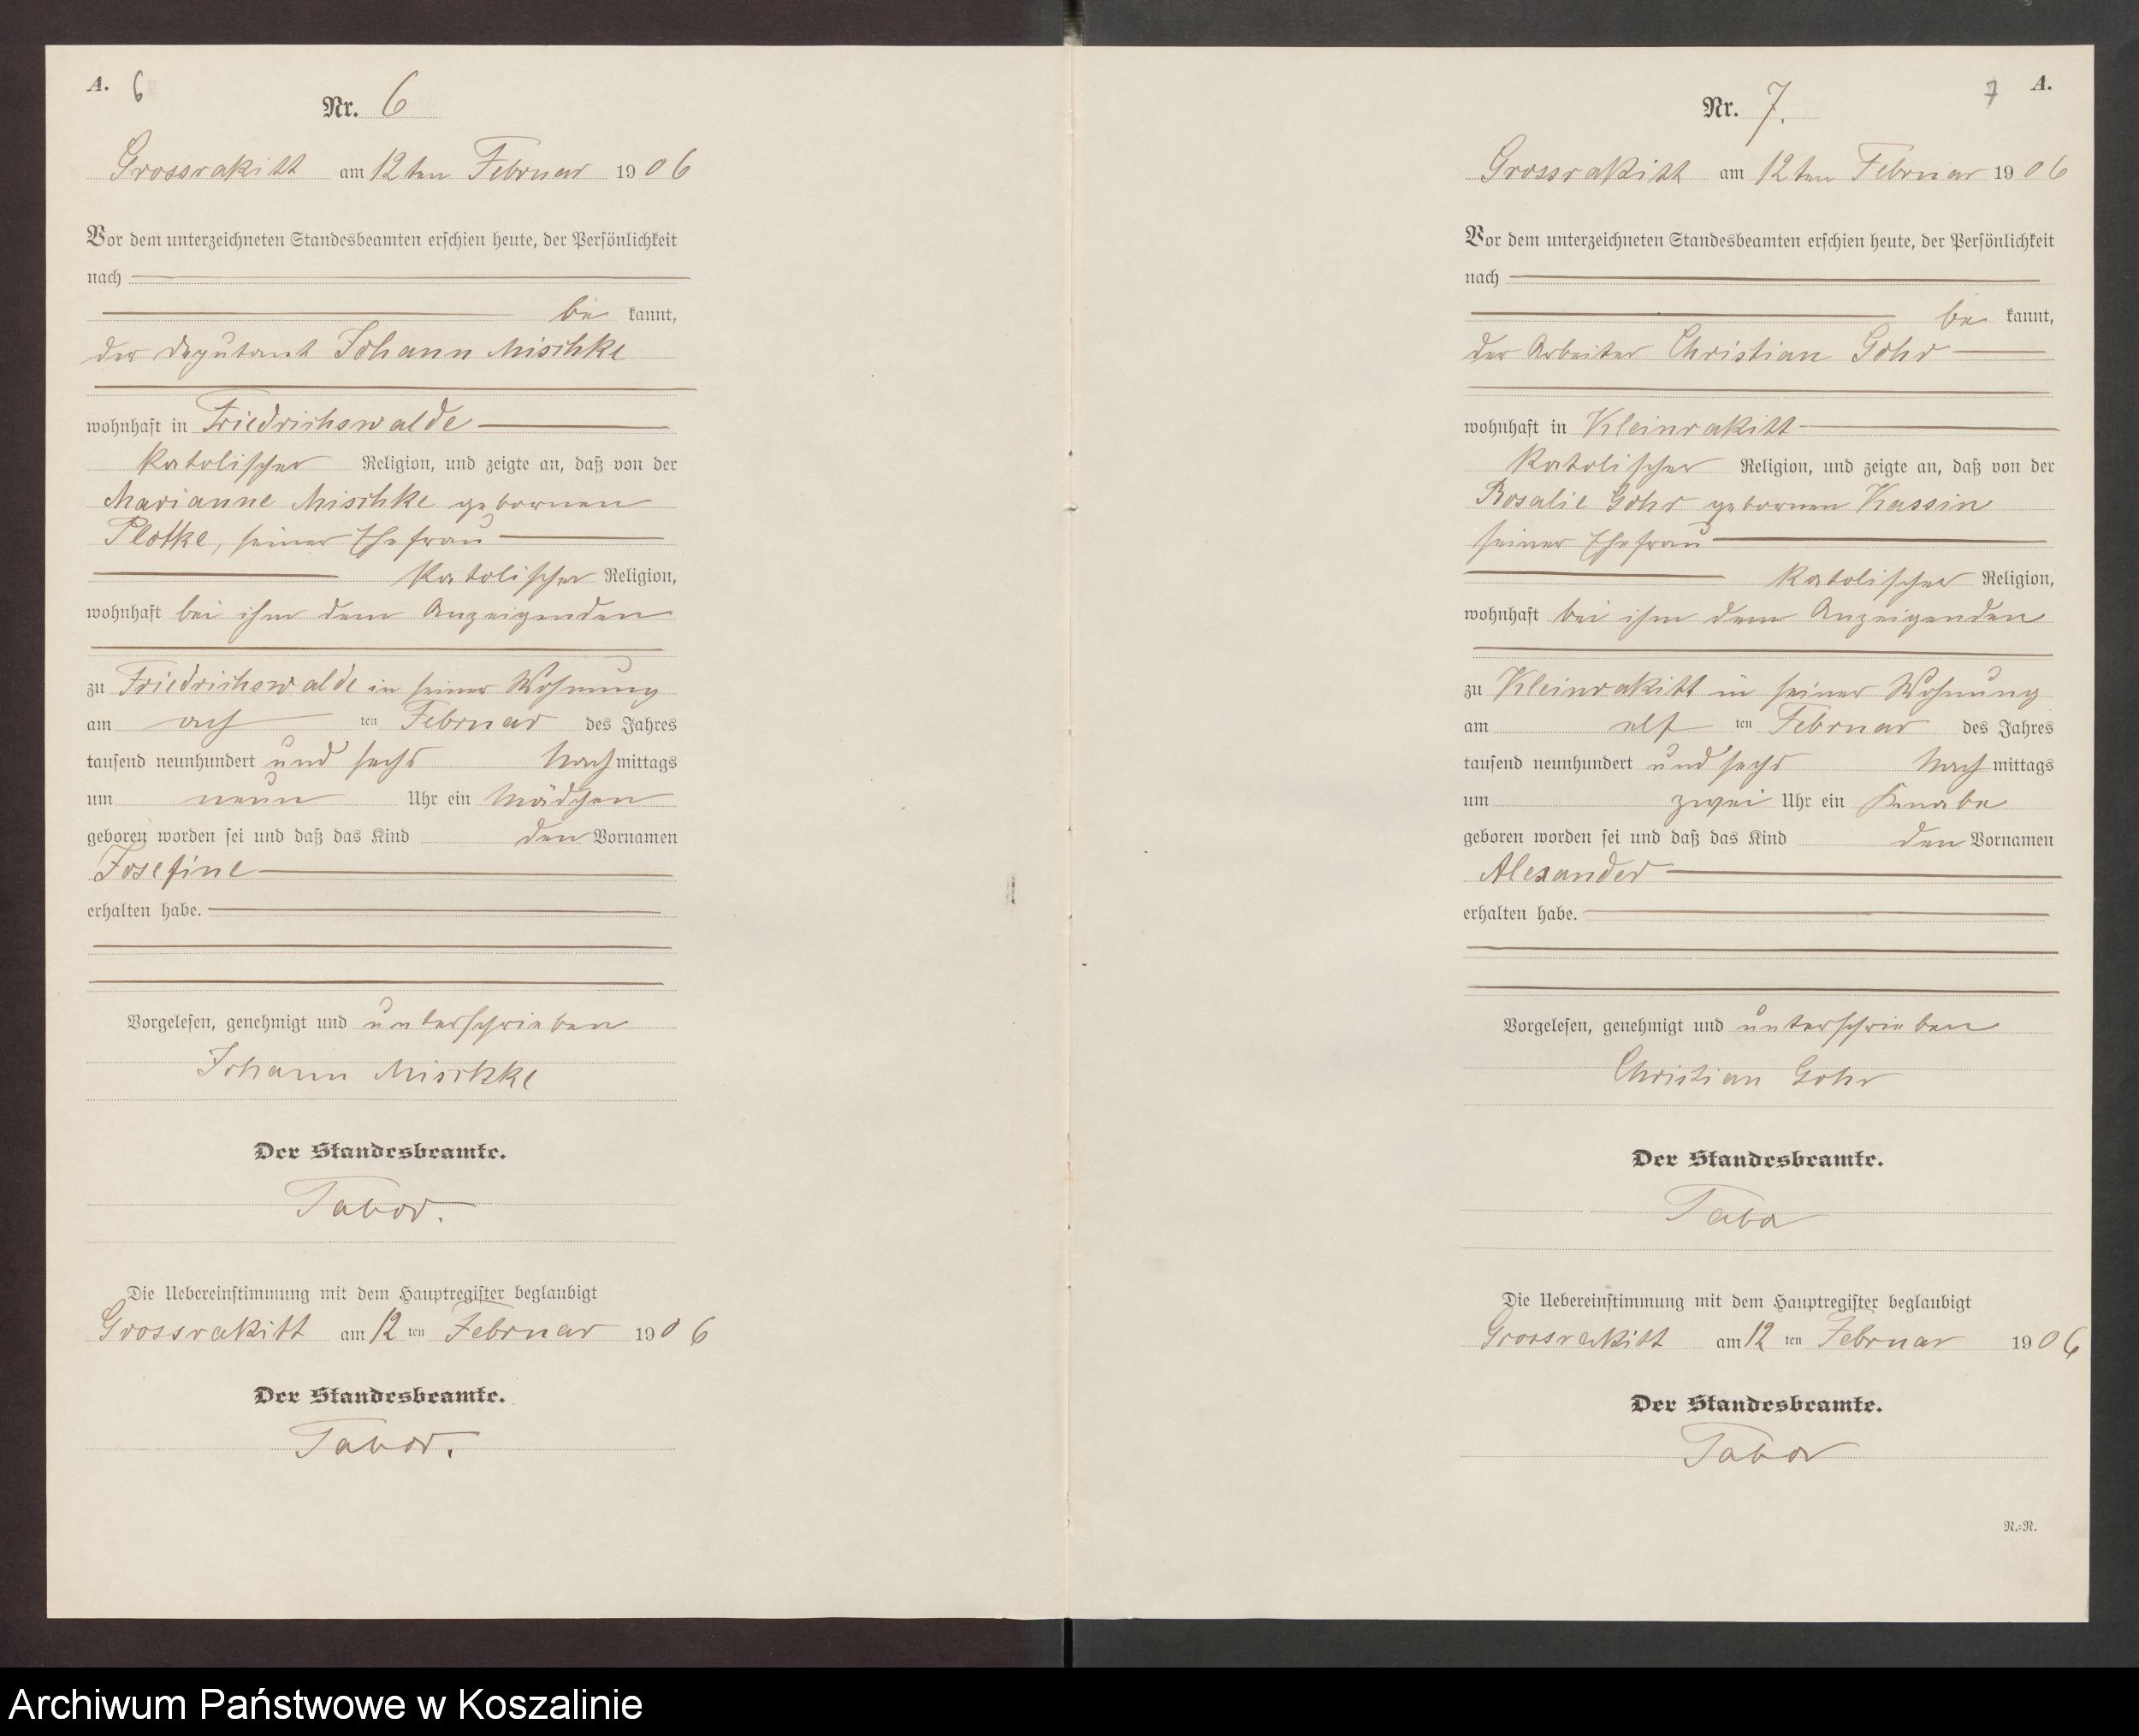 A. 6
Nr. 6
Grossrakitt am 12ten Februar 1906
Vor dem unterzeichneten Standesbeamten erschien heute, der Persönlichkeit
nach
be kannt,
der Deputant Johann Mischke
wohnhaft in Friedrichswalde
katolischer Religion, und zeigte an, daß von der
Marianne Mischke gebornen
Plotke, seiner Ehefrau
katolischer Religion,
wohnhaft bei ihm dem Anzeigenden
zu Friedrichswalde in seiner Wohnung
am ach ten Februar des Jahres
tausend neunhundert und sechs Nach mittags
um neun Uhr ein Mädchen
geboren worden sei und daß das Kind den Vornamen
Josefine
erhalten habe.
Vorgelesen, genehmigt und unterschrieben
Johann Mischke
Der Standesbeamte.
Tabor.
Die Uebereinstimmung mit dem Hauptregister beglaubigt
Grossrakitt am 12 ten Februar 1906
Der Standesbeamte.
Tabor.
7 A.
Nr. 7.
Grossrakitt am 12ten Februar 1906
Vor dem unterzeichneten Standesbeamten erschien heute, der Persönlichkeit
nach
be kannt,
der Arbeiter Christian Gohr
wohnhaft in Kleinrakitt
katolischer Religion, und zeigte an, daß von der
Rosalie Gohr gebornen Kassin
seiner Ehefrau
katolischer Religion,
wohnhaft bei ihm dem Anzeigenden
zu Kleinrakitt in seiner Wohnung
am elf ten Februar des Jahres
tausend neunhundert und sechs Nach mittags
um zwei Uhr ein Knabe
geboren worden sei und daß das Kind den Vornamen
Alexander
erhalten habe.
Vorgelesen, genehmigt und unterschrieben
Christian Gohr
Der Standesbeamte.
Tabor
Die Uebereinstimmung mit dem Hauptregister beglaubigt
Grossrakitt am 12 ten Februar 1906
Der Standesbeamte.
Tabor
N.-N.
Archiwum Państwowe w Koszalinie